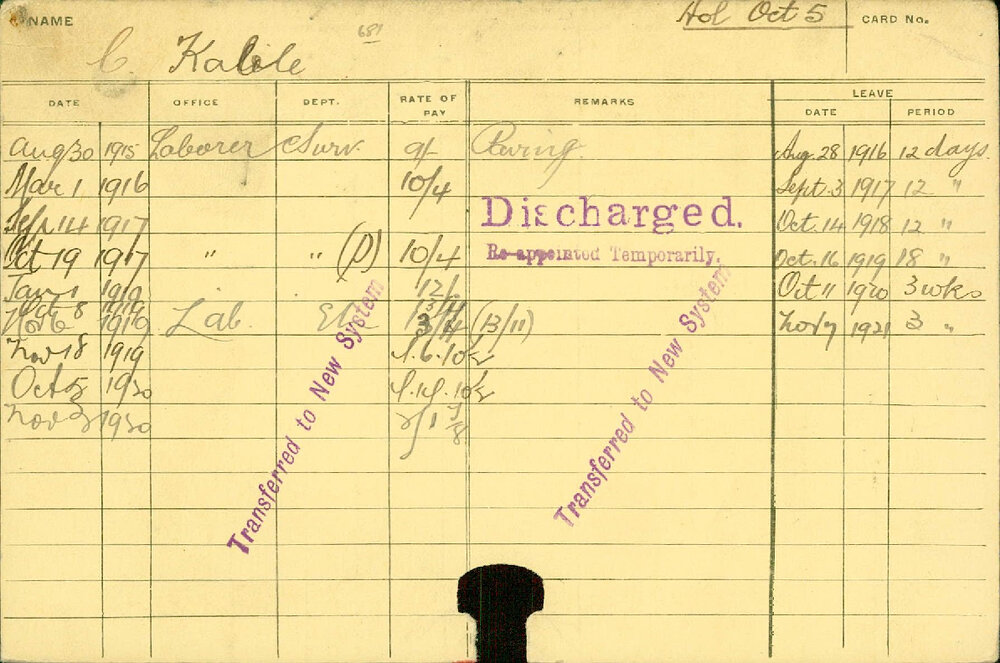 NAME
687
Hol Oct 5
CARD No.
C. Kalile
DATE OFFICE DEPT. RATE OF PAY REMARKS LEAVE
DATE PERIOD
Aug 30 1915 Laborer Surv 9/ Aug. 28 1916 12 days.
Mar 1 1916 10/4 Sept. 3 1917 12 "
Discharged.
14 1917 Oct. 14 1918 12 "
Oct 19 1917 " " (P) 10/4 Re-appointed Temporarily. Oct. 16 1919 18 "
Jan 1 1919 12/ Oct 11 1920 3 wks
Oct 8 1919
Nov 6 1919 Lab. 13/4 (13/11) Nov 7 1921 3 "
Nov 18 1919
Oct 5 1920
Nov 1920
Transferred to New System
Transferred to New System